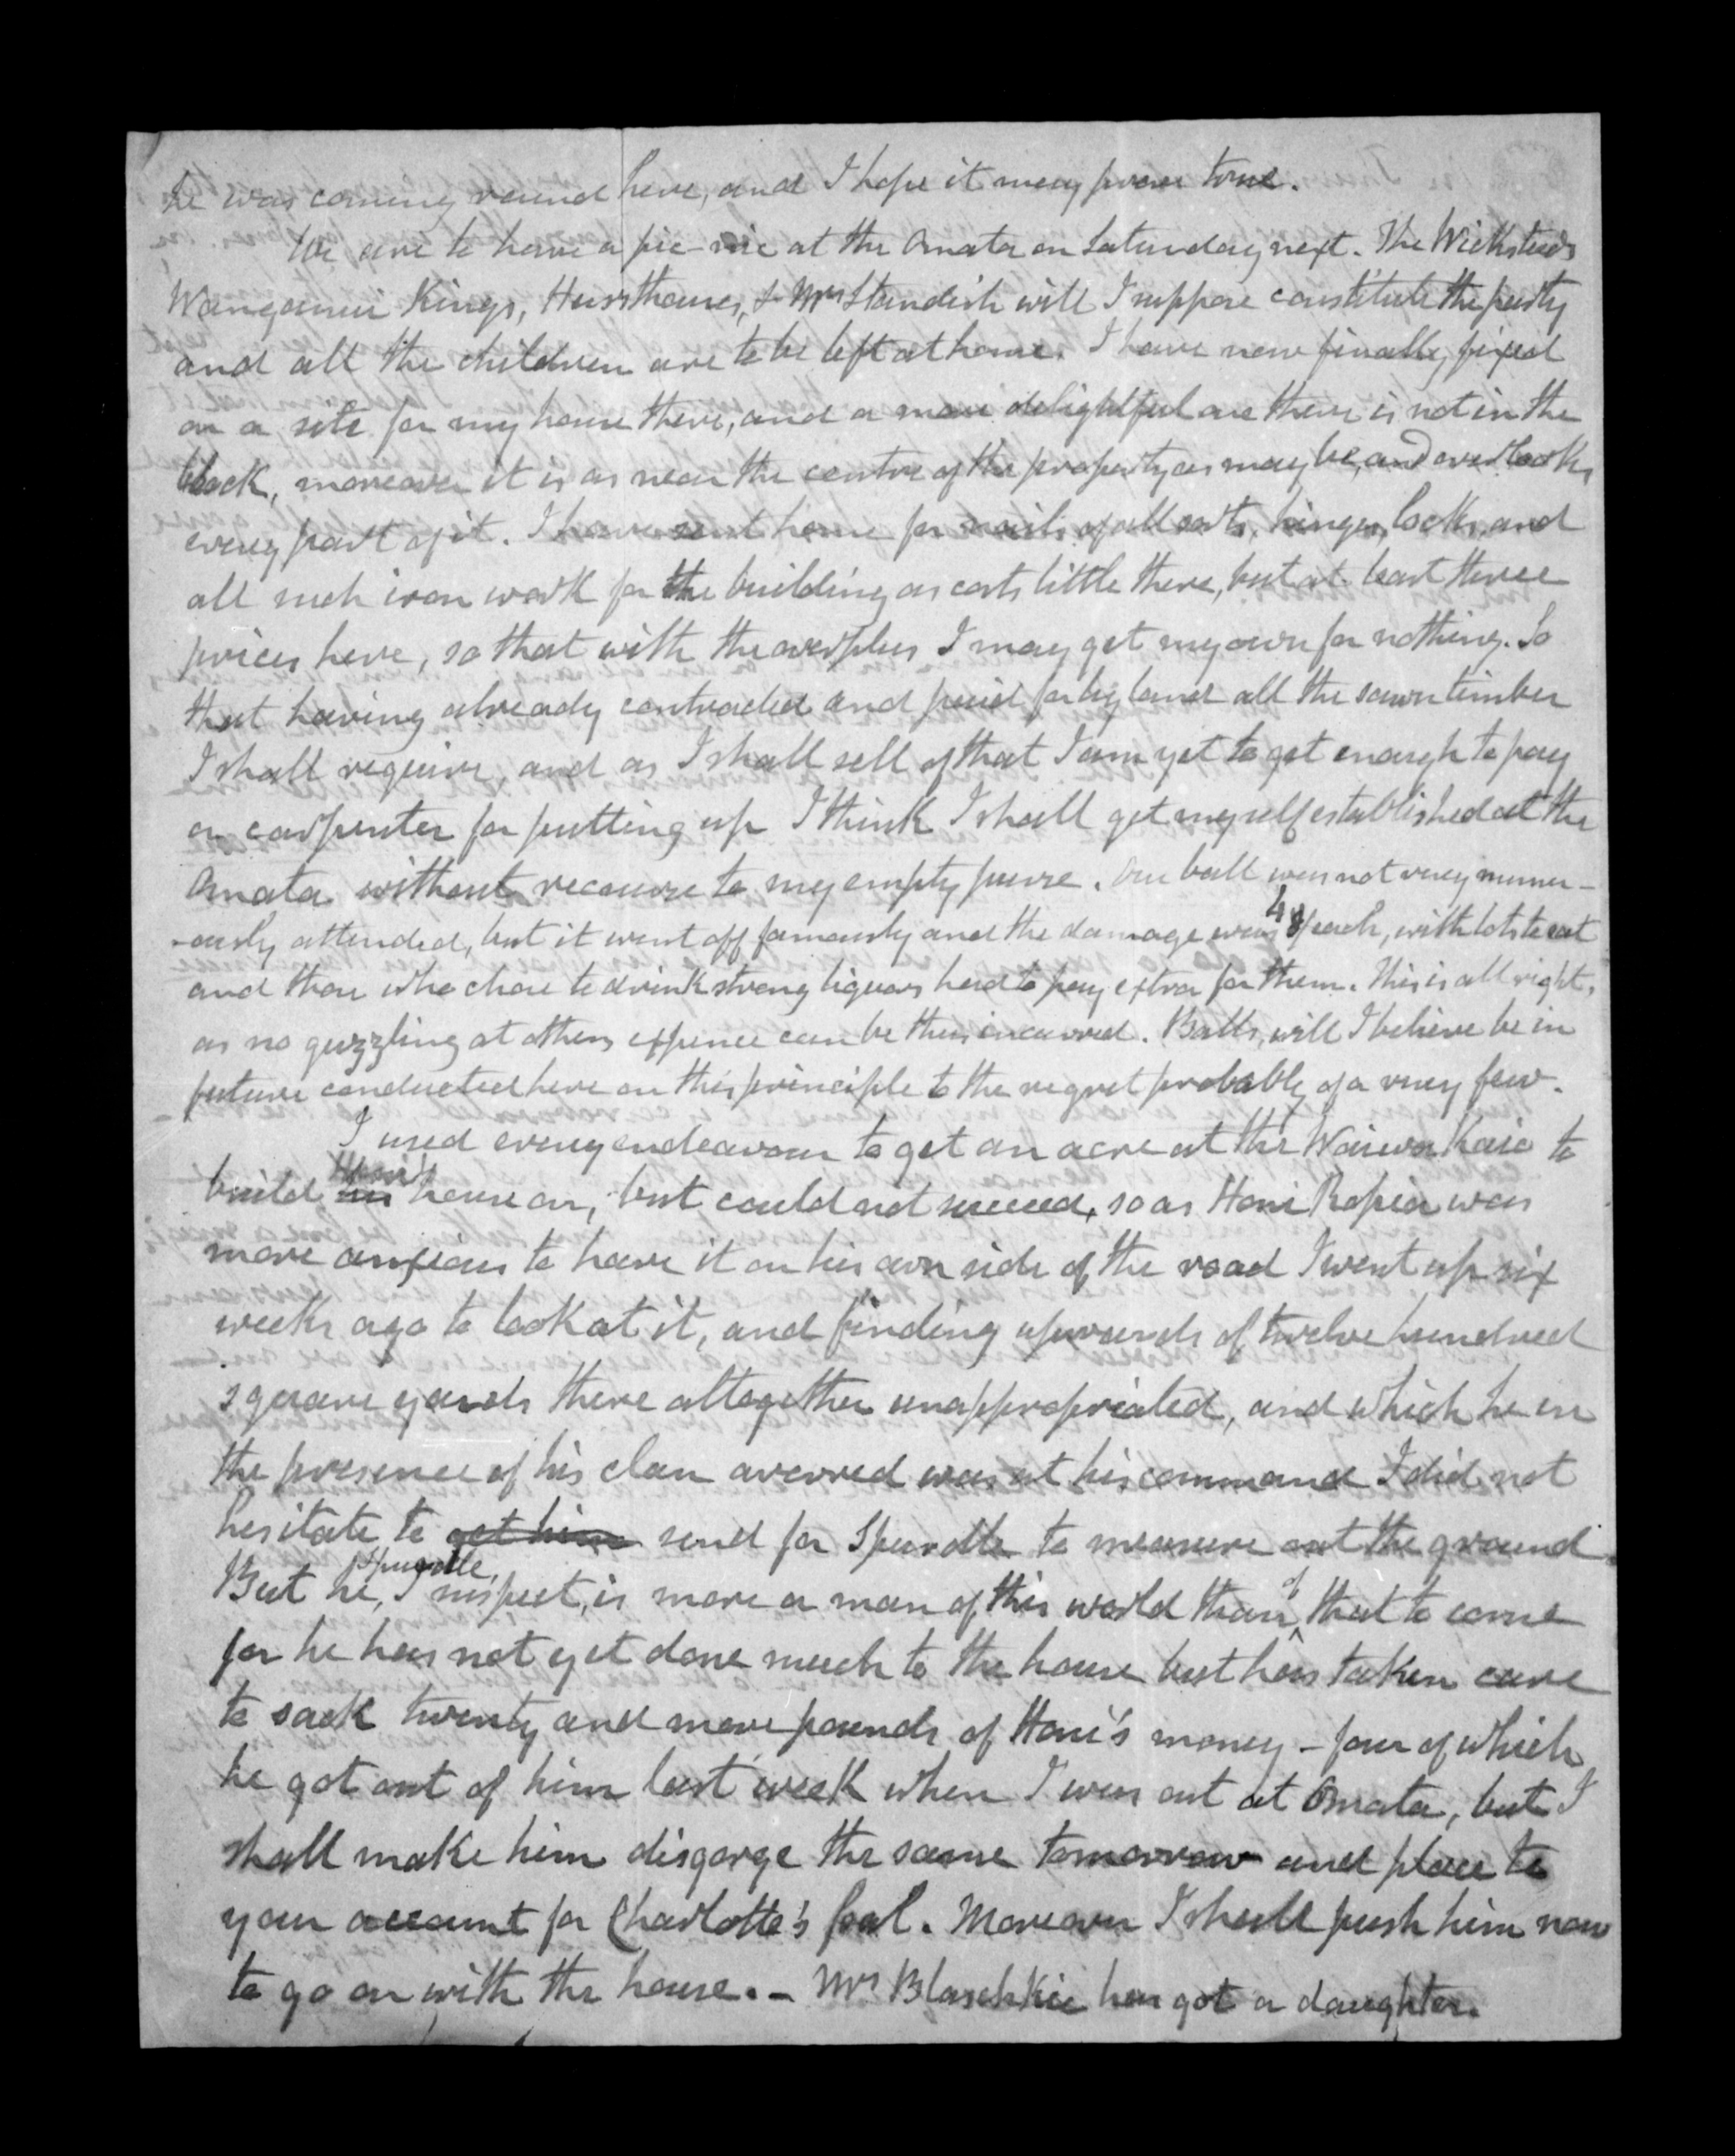 he was coming round here, and I hope it may prove true.
We are to have a pic-nic at the Omata on Saturday next. The Wicksteeds
Wanganui Kings, Hursthouses, & Mrs Standish will I suppose constitute the party
and all the children are to be left at home. I have now finally fixed
on a site for my house there, and a more delightful one there is not in the
block, moreover it is as near the centre of the property as may be, and overlooks
every part of it. I have sent home for nails of all sorts, hinges, locks, and
all such iron work for the building as costs little there, but at least three
prices here, so that with the overplus I may get my own for nothing. So
that having already contracted and paid for by land all the sawn timber
I shall require, and as I shall sell of that I am yet to get enough to pay
a carpenter for putting up I think I shall get myself established at the
Omata without recourse to my empty purse. Our ball was not very numer-
-ously attended, but it went off famously and the damage was 4/ each, with lots to eat
and those who chose to drink strong liquors had to pay extra for them. This is all right,
as no guzzling at others expence can be thus incurred. Balls, will I believe be in
future conducted here on this principle to the regret probably of a very few.
I used every endeavour to get an acre at the Waiwakaio to
build Honi's house on, but could not succeed, so as Honi Ropia was
more anxious to have it on his own side of the road I went up six
weeks ago to look at it, and finding upwards of twelve hundred
square yards there altogether unappropriated, and which he in
the presence of his clan averred was at his command I did not
hesitate to get him send for Spurdle to measure out the ground.
But he, Spurdle, I suspect, is more a man of this world than of that to come
for he has not yet done much to the house but has taken care
to sack twenty and more pounds of Honi's money - four of which
he got out of him last week when I was out at Omata, but I
shall make him disgorge the same tomorrow and place to
your account for Charlotte's foal. Moreover I shall push him now
to go on with the house. - Mrs Blaschkie has got a daughter.